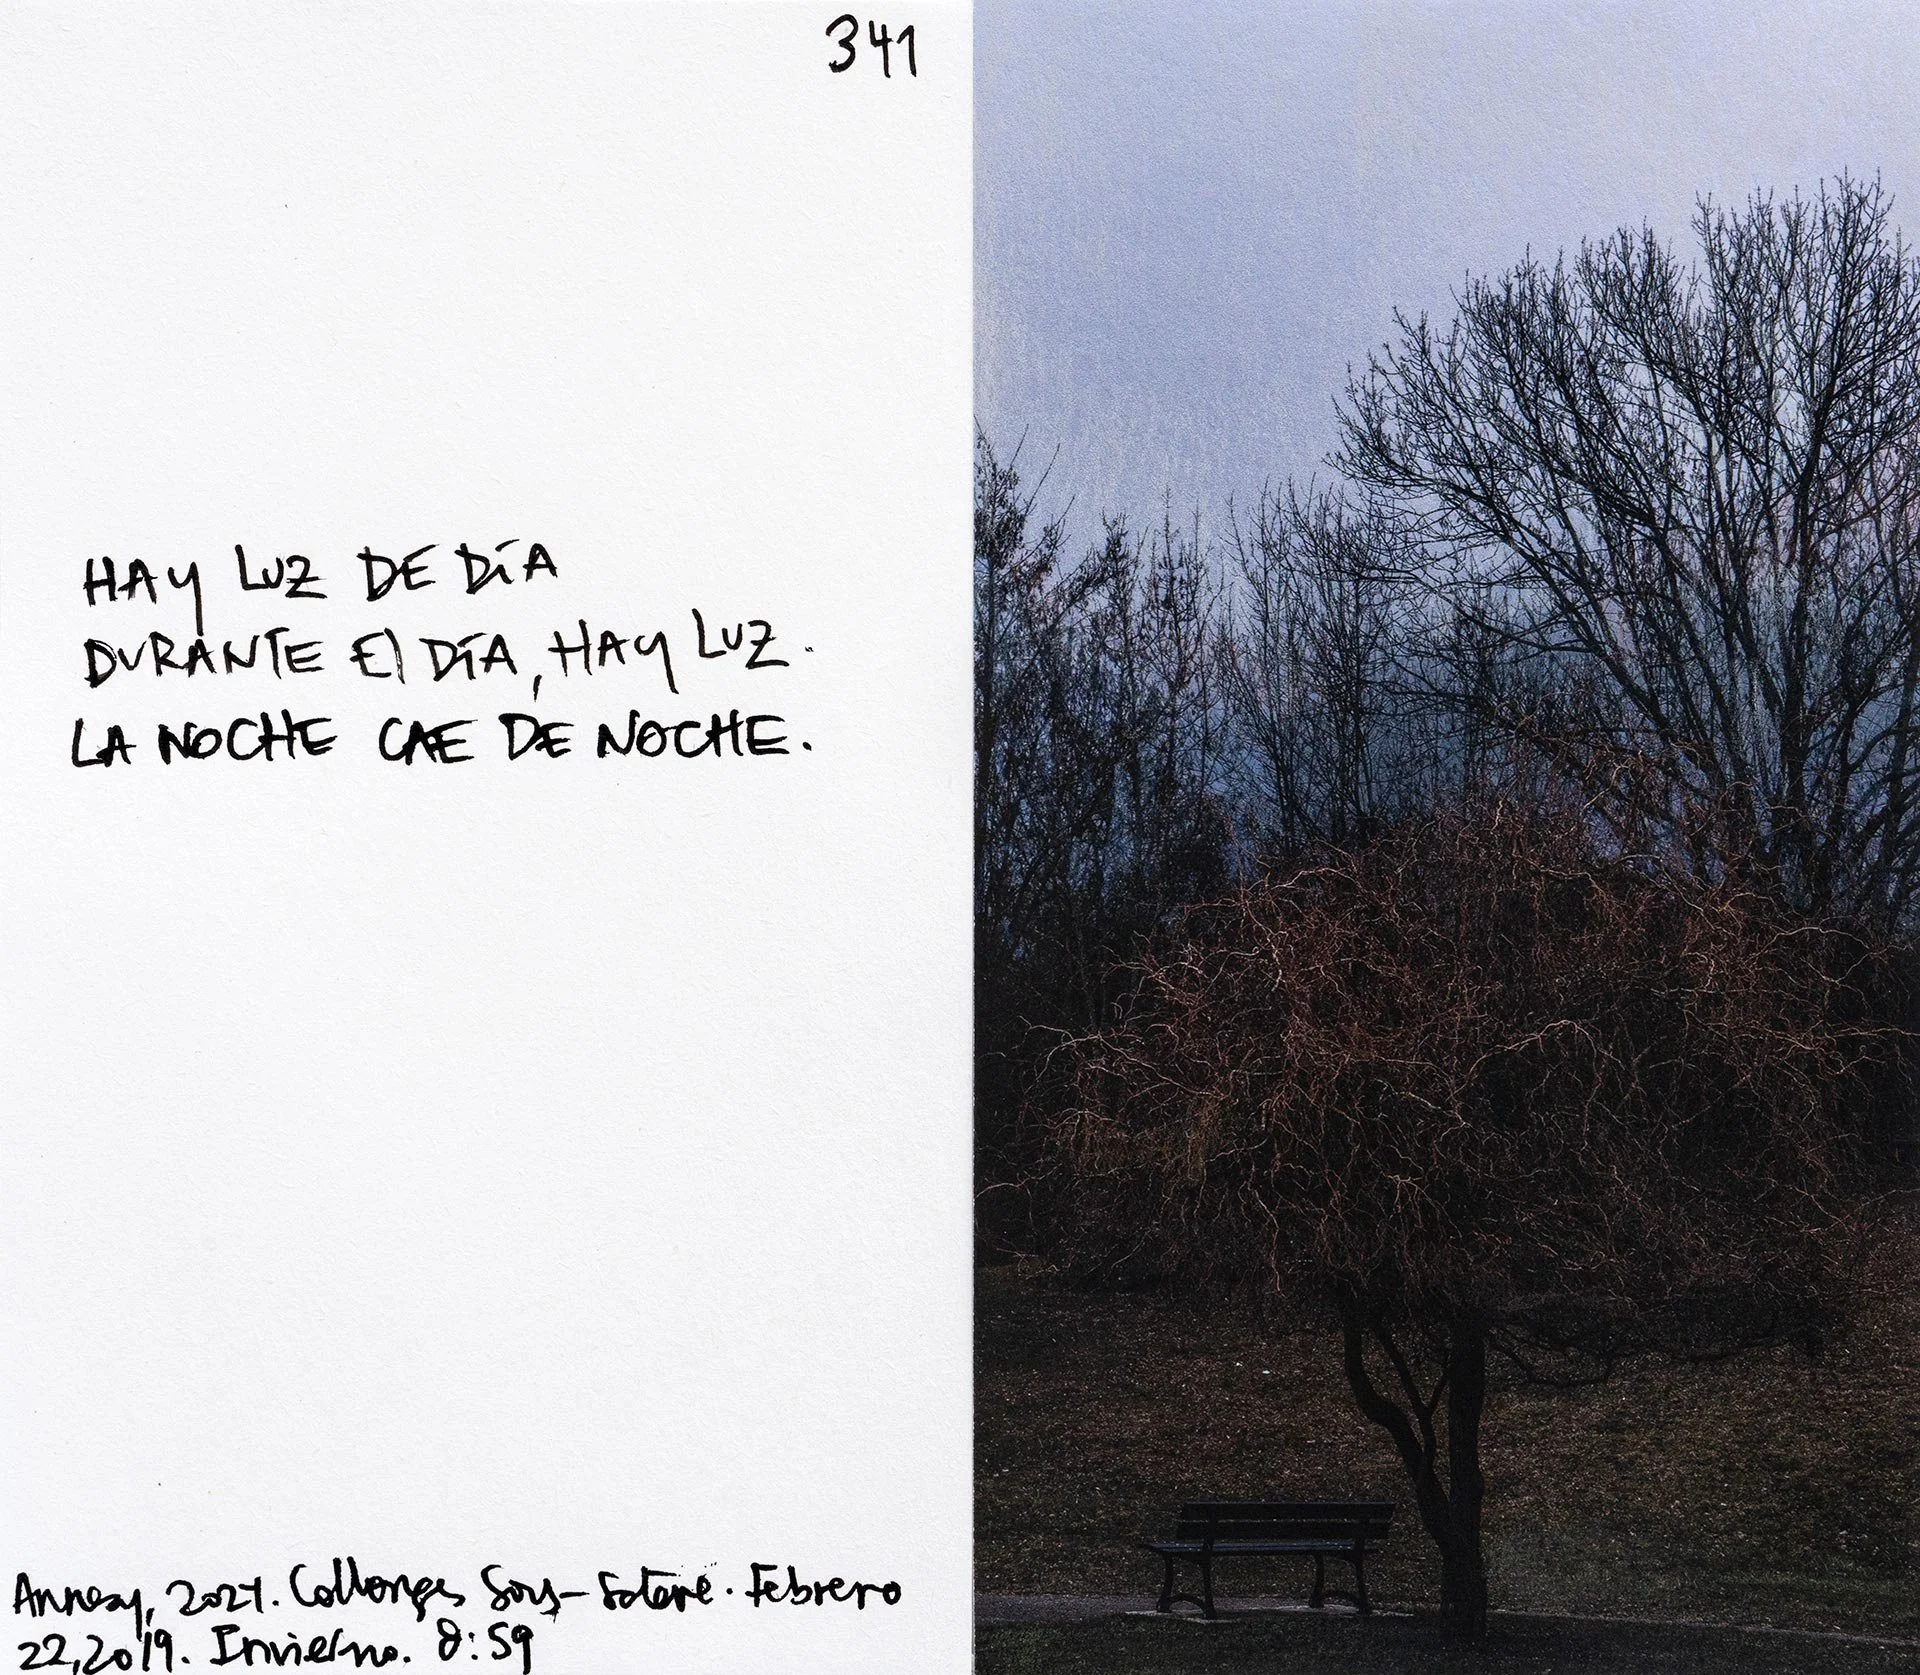 341
HAY LUZ DE DÍA
DURANTE El DÍA, HAY LUZ.
LA NOCHE CAE DE NOCHE.
Annesy, 2021. Collonges Sous-Saleve. Febrero
22,2019. Invierno. 8:59